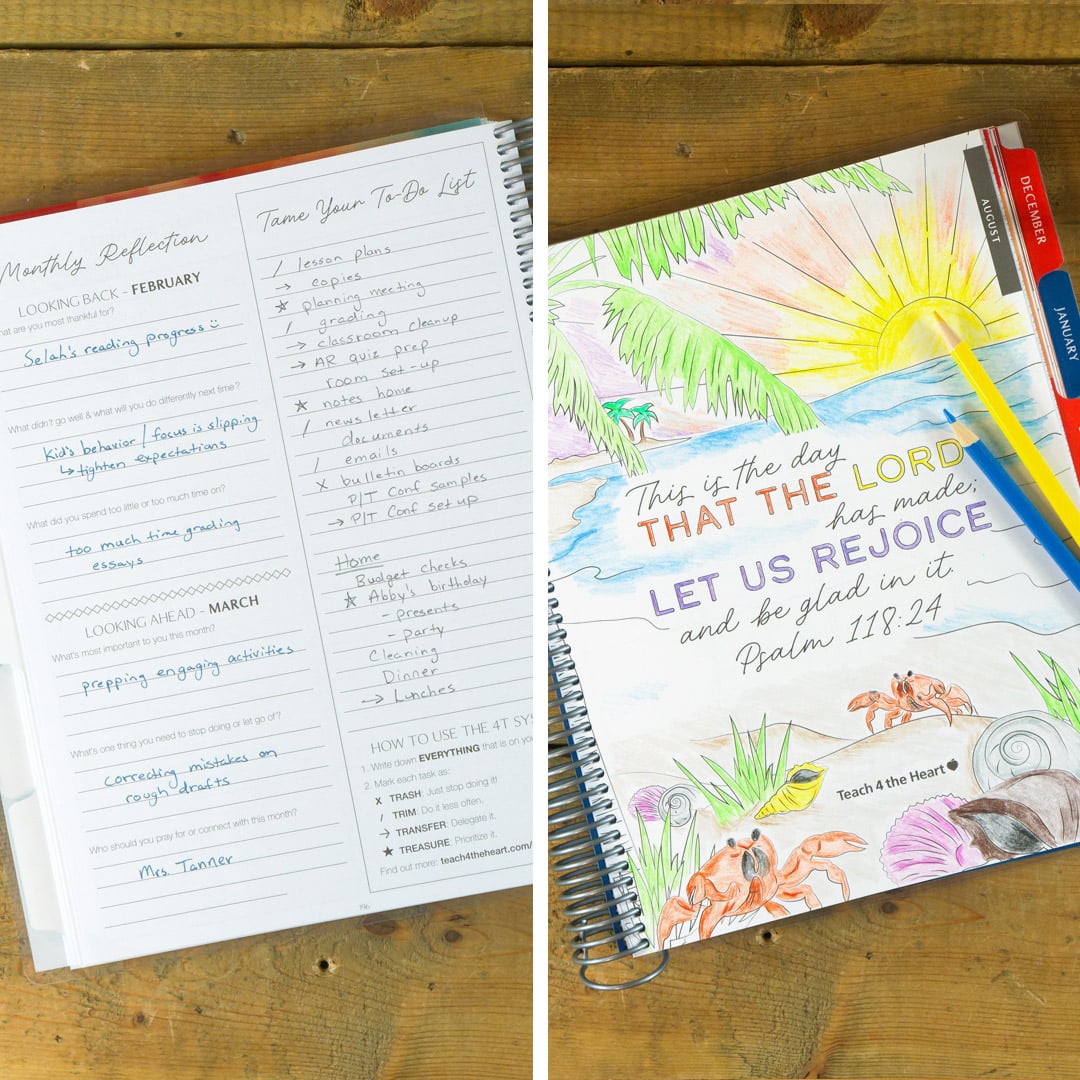 Monthly Reflection
LOOKING BACK - FEBRUARY
hat are you most thankful for?
Selah's reading progress
What didn't go well & what will you do differently next time?
Kid's behavior / focus is slipping
↳ tighten expectations
What did you spend too little or too much time on?
too much time grading
essays
LOOKING AHEAD - MARCH
What's most important to you this month?
prepping engaging activities
What's one thing you need to stop doing or let go of?
correcting mistakes on
rough drafts
Who should you pray for or connect with this month?
Mrs. Tanner
196
Tame Your To-Do List
/ lesson plans
→ copies
★ planning meeting
/ grading
→ classroom cleanup
→ AR quiz prep
room set-up
★ notes home
/ newsletter
documents
/ emails
X bulletin boards
P/T Conf samples
→ P/T Conf set up
Home
Budget checks
★ Abby's birthday
- presents
- party
Cleaning
Dinner
→ Lunches
HOW TO USE THE 4T SYS
1. Write down EVERYTHING that is on your
2. Mark each task as:
X TRASH: Just stop doing it!
/ TRIM: Do it less often.
→ TRANSFER: Delegate it.
★ TREASURE: Prioritize it.
Find out more: teach4theheart.com/
AUGUST
DECEMBER
JANUARY
This is the day
THAT THE LORD
has made;
LET US REJOICE
and be glad in it.
Psalm 118:24
Teach 4 the Heart